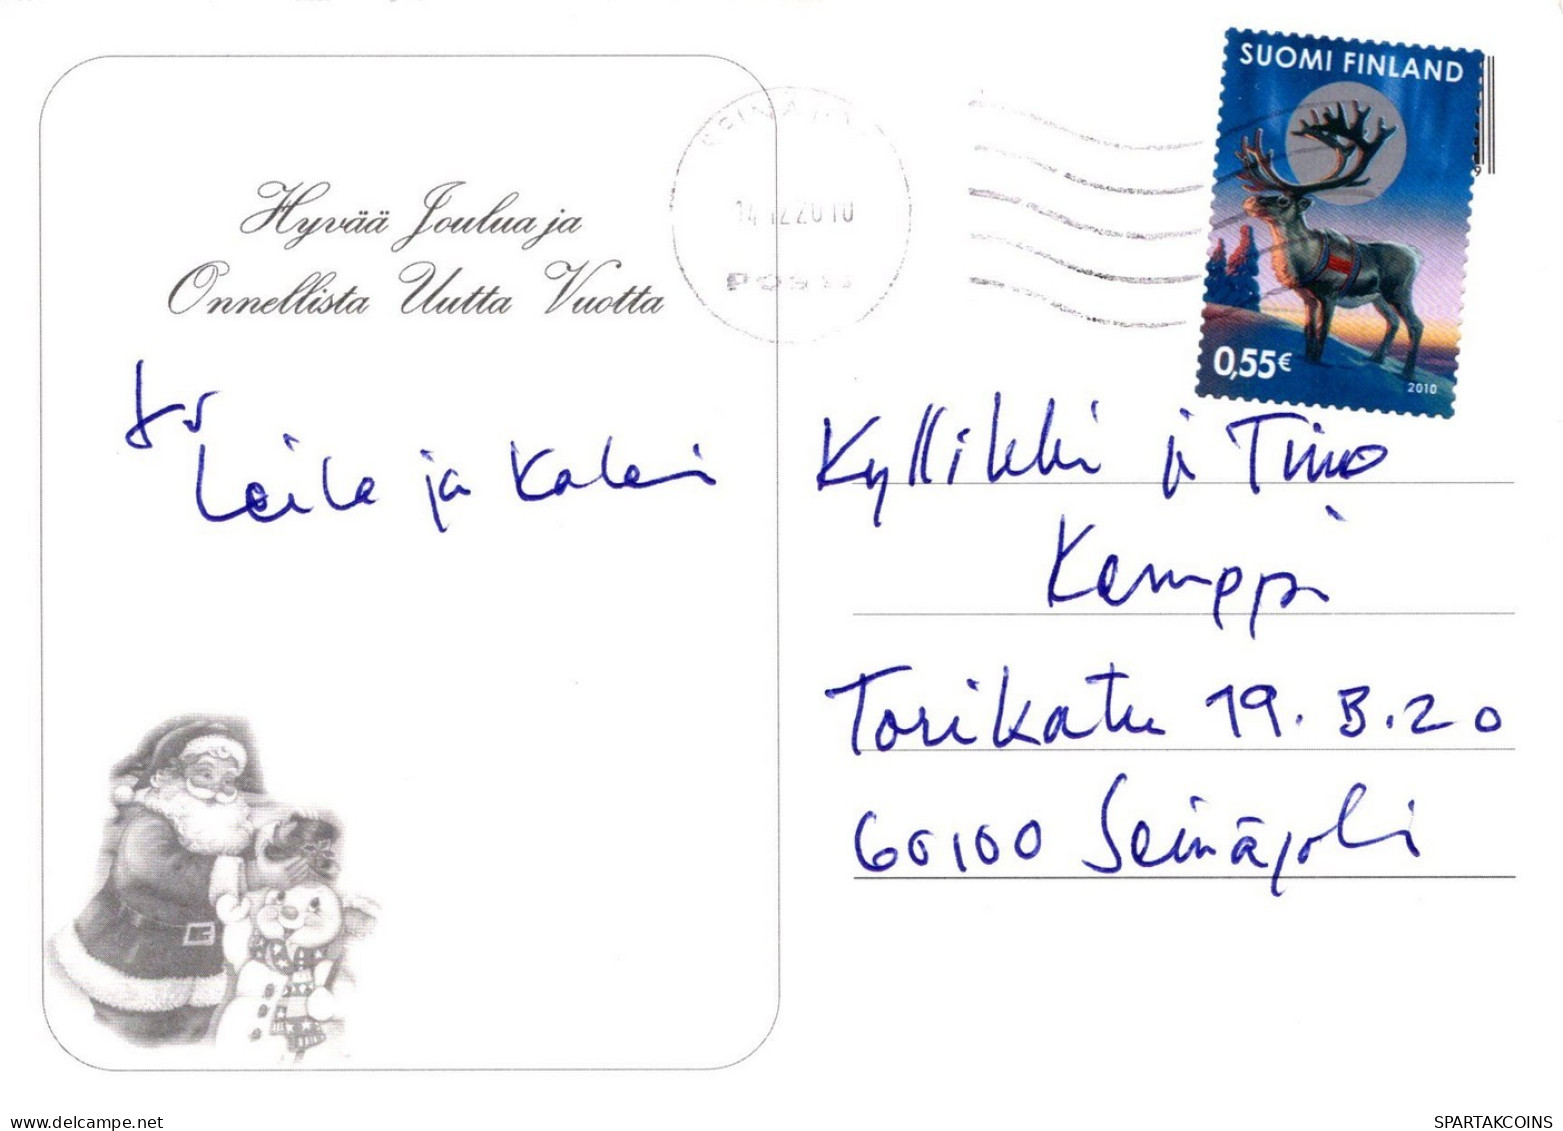 SUOMI FINLAND
0,55€
2010
14.12.2010
Hyvää Joulua ja
Onnellista Uutta Vuotta
Leila ja Kalevi
Kyllikki ja Timo
Kemppi
Torikatu 19.B.20
60100 Seinäjoki
www.delcampe.net
SPARTAKCOINS